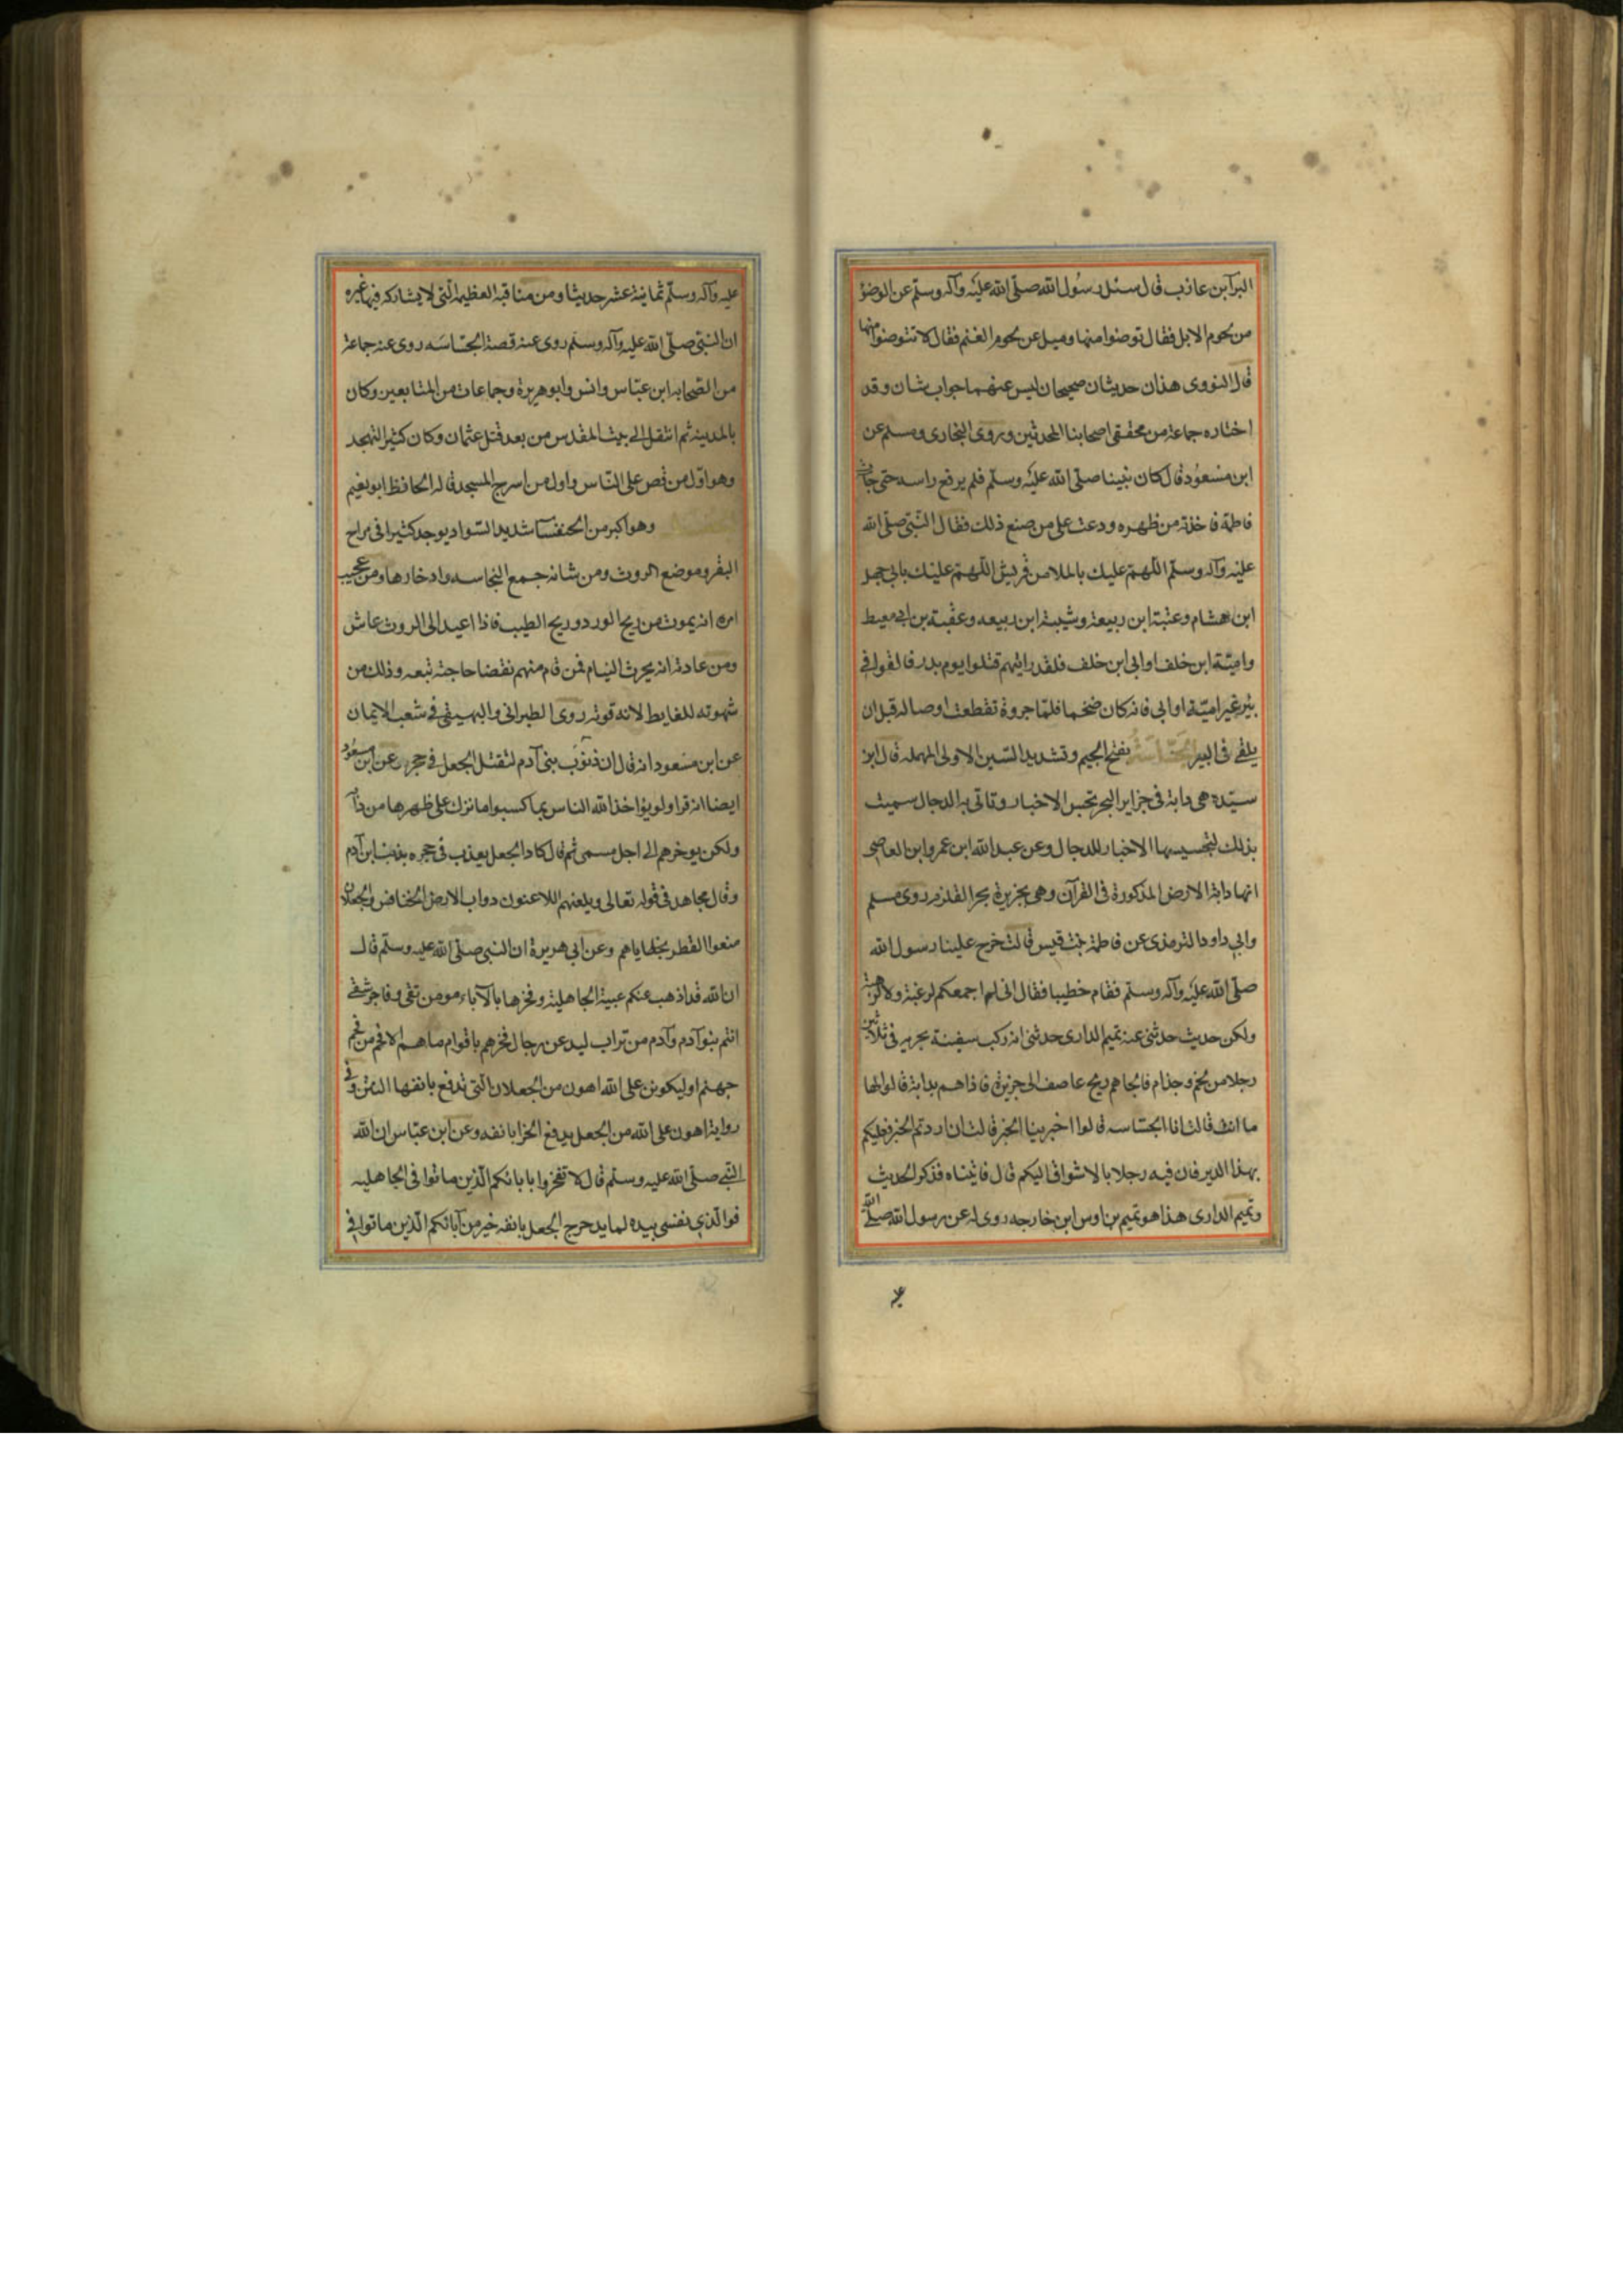 البرآ بن عازب قال سئل رسول الله صلى الله عليه وآله وسلم عن الوضو
من لحوم الابل فقال توضوا منها وميل عن لحوم الغنم فقال لا تتوضوا منها
قال النووى هذان حديثان صحيحان ليس عنهما جواب شان وقد
اختاره جماعة من محققى اصحابنا المحدثين وروى البخارى ومسلم عن
ابن مسعود قال كان نبينا صلى الله عليه وسلم فلم يرفع راسه حتى جات
فاطمة فاخذته من ظهره ودعت على من صنع ذلك فقال النبى صلى الله
عليه وآله وسلم اللهم عليك بالملا من قريش اللهم عليك بابى جهل
ابن هشام وعتبة ابن ربيعة وشيبة ابن ربيعه وعقبة بن ابى معيط
وامية ابن خلف او ابى ابن خلف فلقد رايتهم قتلوا يوم بدر فالقوا فى
بئر غير امية او ابى فانه كان ضخما فلما جروه تقطعت اوصاله قبل ان
يلقى فى البير الجساسة بفتح الجيم وتشديد السين الاولى المهمله قال ابن
سيده هى دابة فى جزاير البحر تجس الاخبار وتاتى به الدجال سميت
بذلك لتجسيسها الاخبار للدجال وعن عبد الله ابن عمرو ابن العاصى
انها دابة الارض المذكورة فى القرآن وهى بجزيرة بحر القلزم روى مسلم
وابى داود الترمذى عن فاطمة بنت قيس قالت خرج علينا رسول الله
صلى الله عليه وآله وسلم فقام خطيبا فقال انى لم اجمعكم لرغبة ولا لرهبة
ولكن حديث حدثنى عنه تميم الدارى حدثنى انه ركب سفينة بحريه فى ثلاثين
رجلا من لخم وجذام فالجاهم ريح عاصف الى جزيرة فاذا هم بدابة قالوا لها
ما انت قالت انا الجساسه قالوا اخبرينا الخبر قالت ان اردتم الخبر فعليكم
بهذا الدير فان فيه رجلا بالاشواق اليكم قال فاتيناه فذكر الحديث
وتميم الدارى هذا هو تميم بن اوس ابن خارجه روى له عن رسول الله صلى الله
عليه
عليه وآله وسلم ثمانية عشر حديثا ومن مناقبه العظيمة التى لا يشاركه فيها غيره
ان النبى صلى الله عليه وآله وسلم روى عنه قصة الجساسه روى عنه جماعة
من الصحابه ابن عباس وانس وابو هريرة وجماعات من المتابعين وكان
بالمدينة ثم انتقل الى بيت المقدس من بعد قتل عثمان وكان كثير التهجد
وهو اول من قص على الناس واول من اسرج المسجد قاله الحافظ ابو نعيم
وهو اكبر من الخنفسآ شديد السواد يوجد كثيرا فى مراح
البقر وموضع الروث ومن شانه جمع النجاسه وادخارها ومن عجيب
امره انه يموت من ريح الورد وريح الطيب فاذا اعيد الى الروث عاش
ومن عادته انه يحرث النيام فمن قام منهم نقضا حاجته تبعه وذلك من
شهوته للغايط لانه قوته روى الطبرانى والبيهقى فى شعب الايمان
عن ابن مسعود انه قال ان ذنوب بنى آدم لتقتل الجعل فى جحره وعن ابن مسعود
ايضا انه قرا ولو يؤاخذ الله الناس بما كسبوا ما ترك على ظهرها من دآبة
ولكن يوخرهم الى اجل مسمى ثم قال كاد الجعل يعذب فى جحره بذنب ابن آدم
وقال مجاهد فى قوله تعالى ويلعنهم اللاعنون دواب الارض الخنافس والجعلان
منعوا القطر بخطاياهم وعن ابى هريرة ان النبى صلى الله عليه وسلم قال
ان الله قد اذهب عنكم عبية الجاهلية وفخرها بالآباء مومن تقى وفاجر شقى
انتم بنو آدم وآدم من تراب ليدعن رجال فخرهم باقوام ما هم الا فحم من فحم
جهنم او ليكونن على الله اهون من الجعلان التى تدفع بانفها النتن وفى
رواية اهون على الله من الجعل يدفع الخرا بانفه وعن ابن عباس ان الله
النبى صلى الله عليه وسلم قال لا تفخروا بابائكم الذين ماتوا فى الجاهليه
فوالذى نفسى بيده لما يدحرج الجعل بانفه خير من آبائكم الذين ماتوا فى